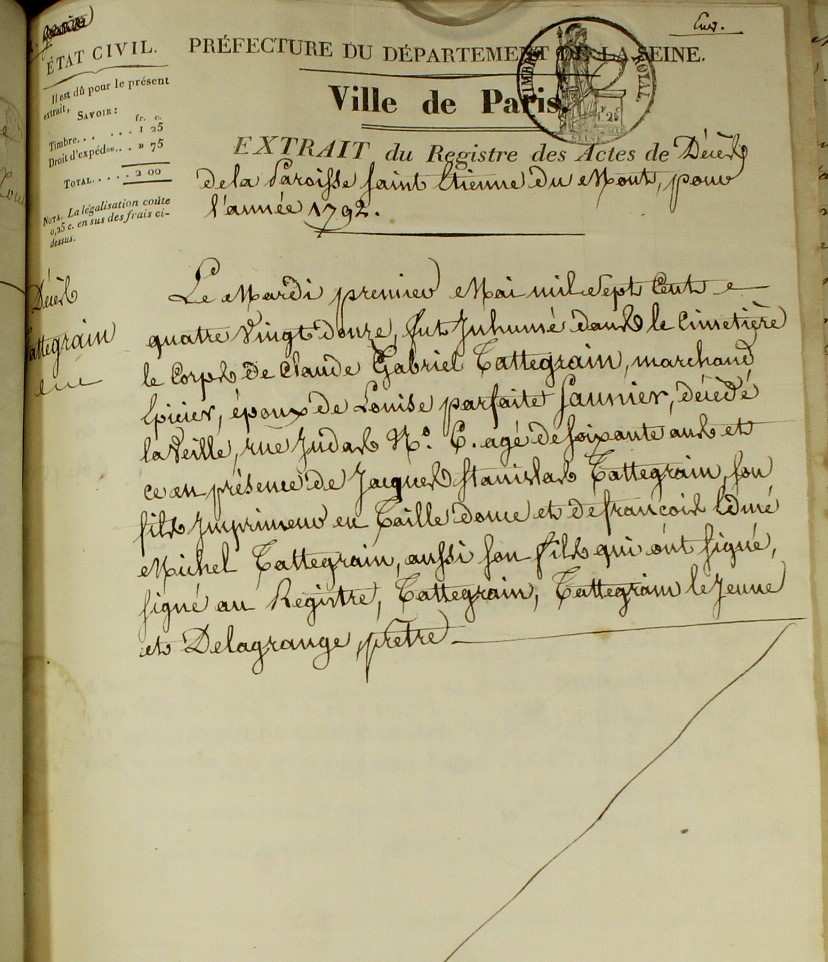 ÉTAT CIVIL.
Il est dû pour le présent
extrait,
SAVOIR:
fr. c.
Timbre. . . . . . 1 25
Droit d'expédon. . . » 75
TOTAL. . . . . 2 00
NOTA. La légalisation coûte
0,25 c. en sus des frais ci-
dessus.
PRÉFECTURE DU DÉPARTEMENT DE LA SEINE.
Ville de Paris.
TIMBRE ROYAL
EXTRAIT du Registre des Actes de Décès
de la Paroisse Saint Etienne du Mont, pour
l'année 1792.
Décès
Tattegrain
Le Mardi premier Mai mil Sept Cent
quatre Vingt douze, fut Inhumé dans le Cimetière
le Corps de Claude Gabriel Tattegrain, marchand
Epicier, époux de Louise parfaite Saunier, décédé
la Veille, rue Judas No. 6. agé de soixante ans et
ce en présence de Jacques Stanislas Tattegrain, son
fils Imprimeur en Taille douce et de françois Edmé
Michel Tattegrain, aussi son fils qui ont signé,
signé au Registre, Tattegrain, Tattegrain le Jeune
et Delagrange, prêtre